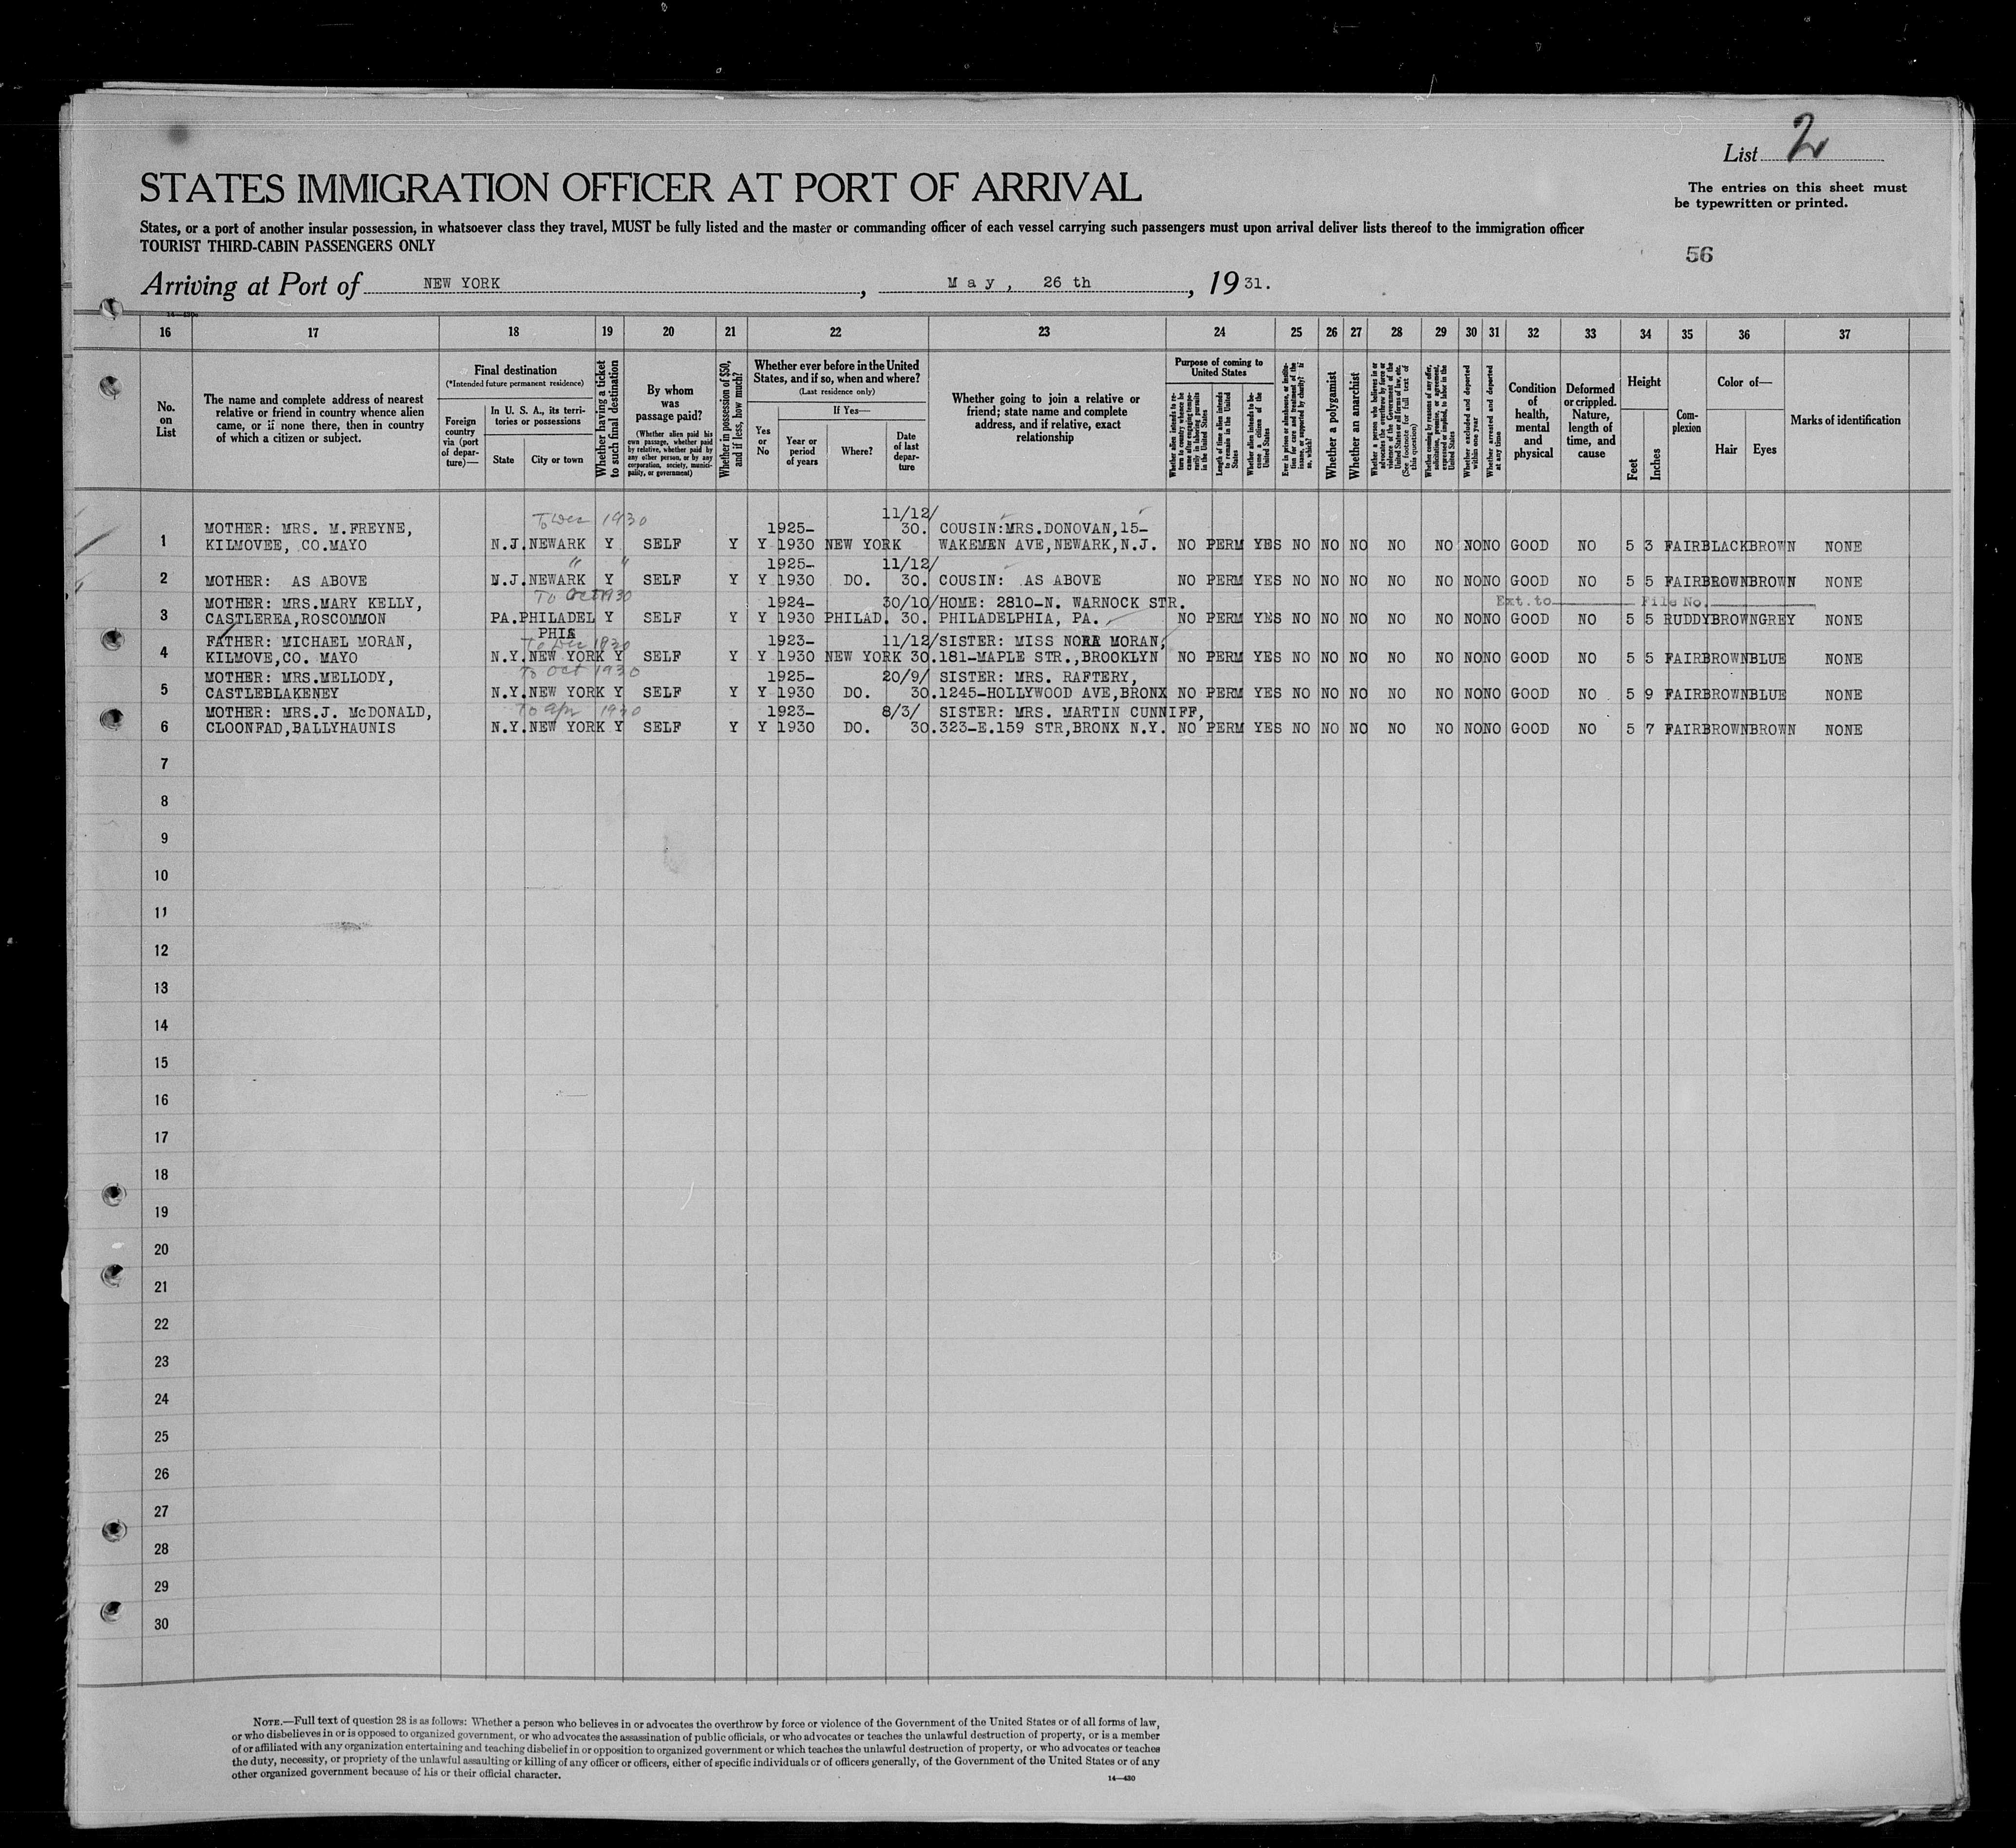 List 2
The entries on this sheet must
be typewritten or printed.
STATES IMMIGRATION OFFICER AT PORT OF ARRIVAL
States, or a port of another insular possession, in whatsoever class they travel, MUST be fully listed and the master or commanding officer of each vessel carrying such passengers must upon arrival deliver lists thereof to the immigration officer
TOURIST THIRD-CABIN PASSENGERS ONLY
56
Arriving at Port of NEW YORK, May, 26 th, 1931.
14—430
16 17 18 19 20 21 22 23 24 25 26 27 28 29 30 31 32 33 34 35 36 37
No.
on
List
The name and complete address of nearest
relative or friend in country whence alien
came, or if none there, then in country
of which a citizen or subject.
Final destination
(*Intended future permanent residence)
Foreign
country
via (port
of depar-
ture)—
In U. S. A., its terri-
tories or possessions
State City or town
Whether having a ticket
to such final destination
By whom
was
passage paid?
(Whether alien paid his
own passage, whether paid
by relative, whether paid by
any other person, or by any
corporation, society, munici-
pality, or government)
Whether in possession of $50,
and if less, how much?
Whether ever before in the United
States, and if so, when and where?
(Last residence only)
Yes
or
No
If Yes—
Year or
period
of years
Where?
Date
of last
depar-
ture
Whether going to join a relative or
friend; state name and complete
address, and if relative, exact
relationship
Purpose of coming to
United States
Whether alien intends to re-
turn to country whence he
came after engaging tempo-
rarily in laboring pursuits
in the United States
Length of time alien intends
to remain in the United
States
Whether alien intends to be-
come a citizen of the
United States
Ever in prison or almshouse, or institu-
tion for care and treatment of the
insane, or supported by charity? If
so, which?
Whether a polygamist
Whether an anarchist
Whether a person who believes in or
advocates the overthrow by force or
violence of the Government of the
United States or all forms of law, etc.
(See footnote for full text of
this question)
Whether coming by reasons of any offer,
solicitation, promise, or agreement,
expressed or implied, to labor in the
United States
Whether excluded and deported
within one year
Whether arrested and deported
at any time
Condition
of
health,
mental
and
physical
Deformed
or crippled.
Nature,
length of
time, and
cause
Height
Feet Inches
Com-
plexion
Color of—
Hair Eyes
Marks of identification
To Dec 1930
11/12/
MOTHER: MRS. M.FREYNE, 1925- 30. COUSIN:MRS.DONOVAN,15-
1 KILMOVEE, CO.MAYO N.J. NEWARK Y SELF Y Y 1930 NEW YORK WAKEMEN AVE,NEWARK,N.J. NO PERM YES NO NO NO NO NO NO NO GOOD NO 5 3 FAIR BLACK BROWN NONE
" " 1925- 11/12/
2 MOTHER: AS ABOVE N.J. NEWARK Y SELF Y Y 1930 DO. 30. COUSIN: AS ABOVE NO PERM YES NO NO NO NO NO NO NO GOOD NO 5 5 FAIR BROWN BROWN NONE
To Oct 1930
MOTHER: MRS.MARY KELLY, 1924- 30/10/ HOME: 2810-N. WARNOCK STR. Ext. to File No.
3 CASTLEREA,ROSCOMMON PA. PHILADEL Y SELF Y Y 1930 PHILAD. 30. PHILADELPHIA, PA. NO PERM YES NO NO NO NO NO NO NO GOOD NO 5 5 RUDDY BROWN GREY NONE
PHIA
To Dec 1930
FATHER: MICHAEL MORAN, 1923- 11/12/ SISTER: MISS NORA MORAN,
4 KILMOVE,CO. MAYO N.Y. NEW YORK Y SELF Y Y 1930 NEW YORK 30. 181-MAPLE STR.,BROOKLYN NO PERM YES NO NO NO NO NO NO NO GOOD NO 5 5 FAIR BROWN BLUE NONE
To Oct 1930
MOTHER: MRS.MELLODY, 1925- 20/9/ SISTER: MRS. RAFTERY,
5 CASTLEBLAKENEY N.Y. NEW YORK Y SELF Y Y 1930 DO. 30. 1245-HOLLYWOOD AVE,BRONX NO PERM YES NO NO NO NO NO NO NO GOOD NO 5 9 FAIR BROWN BLUE NONE
To Apr 1930
MOTHER: MRS.J. McDONALD, 1923- 8/3/ SISTER: MRS. MARTIN CUNNIFF,
6 CLOONFAD,BALLYHAUNIS N.Y. NEW YORK Y SELF Y Y 1930 DO. 30. 323-E.159 STR,BRONX N.Y. NO PERM YES NO NO NO NO NO NO NO GOOD NO 5 7 FAIR BROWN BROWN NONE
7
8
9
10
11
12
13
14
15
16
17
18
19
20
21
22
23
24
25
26
27
28
29
30
NOTE.—Full text of question 28 is as follows: Whether a person who believes in or advocates the overthrow by force or violence of the Government of the United States or of all forms of law,
or who disbelieves in or is opposed to organized government, or who advocates the assassination of public officials, or who advocates or teaches the unlawful destruction of property, or is a member
of or affiliated with any organization entertaining and teaching disbelief in or opposition to organized government or which teaches the unlawful destruction of property, or who advocates or teaches
the duty, necessity, or propriety of the unlawful assaulting or killing of any officer or officers, either of specific individuals or of officers generally, of the Government of the United States or of any
other organized government because of his or their official character.
14—430